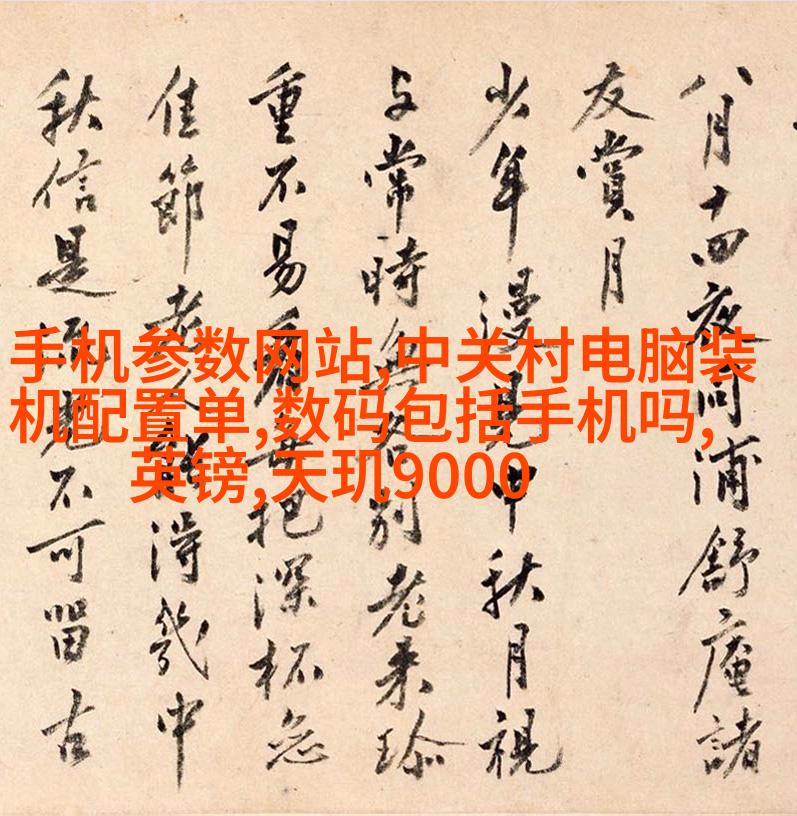 手机参数网站,中关村电脑装
机配置单,数码包括手机吗,
英镑,天玑9000
八月十四夜同浦舒庵諸
友賞月
少年漫見中秋月視
与常時無各別老来珎
重不易看把深杯
佳節老人能得幾中
秋信是流光不可留古